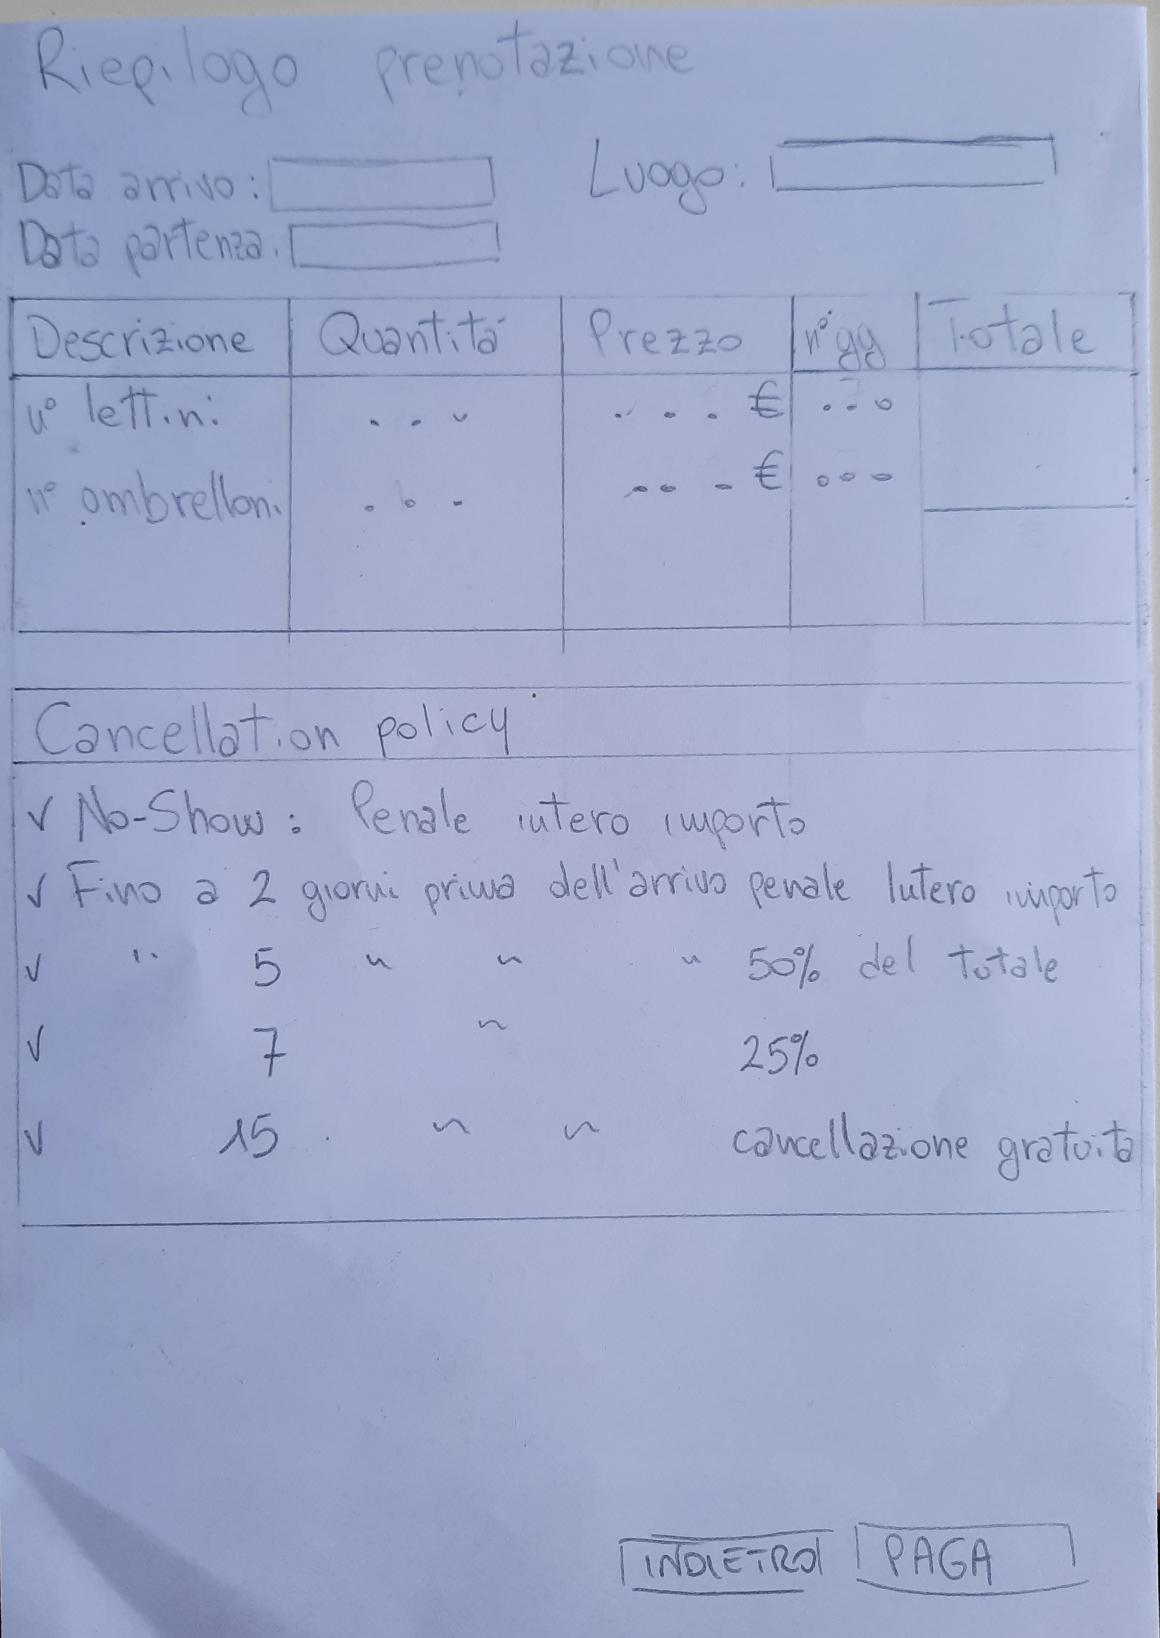 Riepilogo prenotazione
Data arrivo: Luogo:
Data partenza.
Descrizione Quantità Prezzo n° gg Totale
n° lettini ... ... € ...
n° ombrelloni ... ... € ...
Cancellation policy
√ No-Show: Penale intero importo
√ Fino a 2 giorni prima dell'arrivo penale intero importo
√ " 5 " " " 50% del totale
√ 7 " 25%
√ 15 " " cancellazione gratuita
INDIETRO PAGA